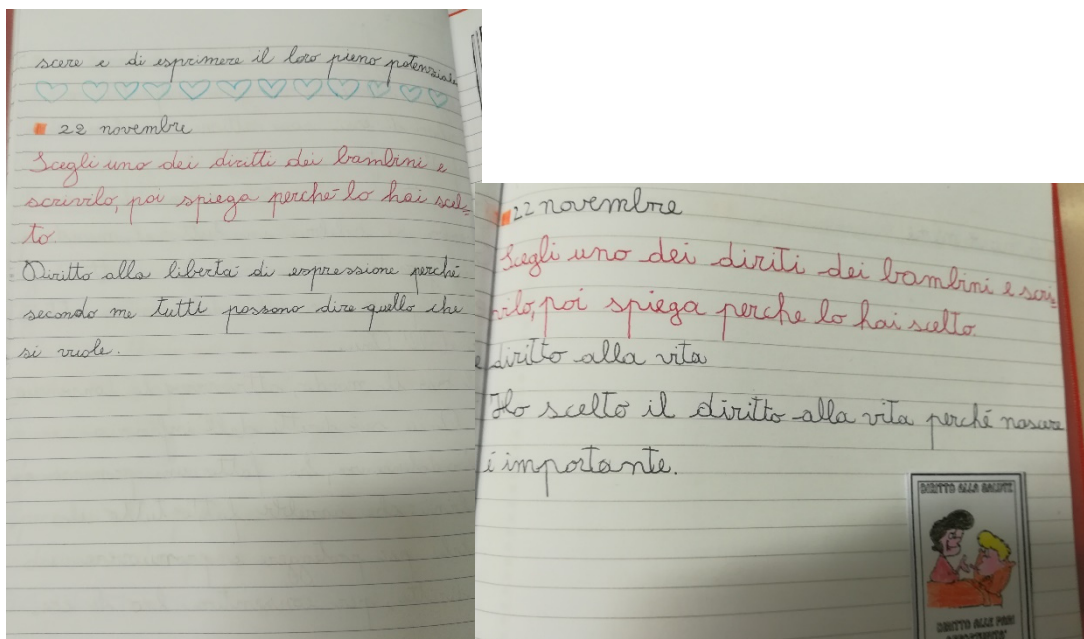 scere e di esprimere il loro pieno potenziale
22 novembre
Scegli uno dei diritti dei bambini e
scrivilo, poi spiega perché lo hai scel=
to.
Diritto alla libertà di espressione perché
secondo me tutti possono dire quello che
si vuole.
22 novembre
Scegli uno dei diriti dei bambini e scri=
vilo, poi spiega perche lo hai scelto.
diritto alla vita
Ho scelto il diritto alla vita perché nascere
é importante.
DIRITTO ALLA SALUTE
DIRITTO ALLE PARI
OPPORTUNITA'